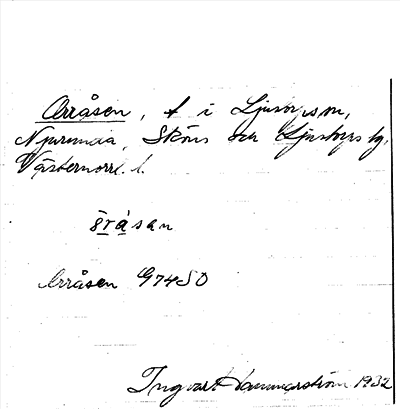 Orråsen, t i Ljustorps sn,
Njurunda, Sköns och Ljustorps tg,
Västernorrl. l.
ŏrå̀san
Orråsen G74SO
Ingvart Hammarström 1932